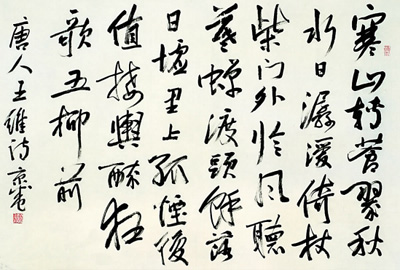 寒山转苍翠秋
水日潺湲倚杖
柴门外临风聽
暮蝉渡頭餘落
日墟里上孤煙復
值接輿醉狂
歌五柳前
唐人王維诗